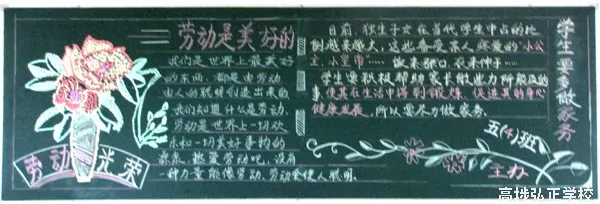 劳动是美好的
我们是世界上最美好
的东西,都是由劳动、
由人的聪明创造出来的
我们知道什么是劳动,
劳动是世界上一切欢
乐和一切美好事物的
源泉,热爱劳动吧,没有
一种力量能像劳动,劳动会使人聪明.
劳动 光荣
目前,独生子女在当代学生中占的比
例越来越大,这些备受亲人疼爱的“小公
主,小皇帝”
饭来张口,衣来伸手
学生要积极帮助家长做些力所能及的
事,使其在生活中得到锻炼,促进其的身心
健康发展,所以要尽力做家务。
学生要多做家务
五(4)班
主办
高埗弘正学校